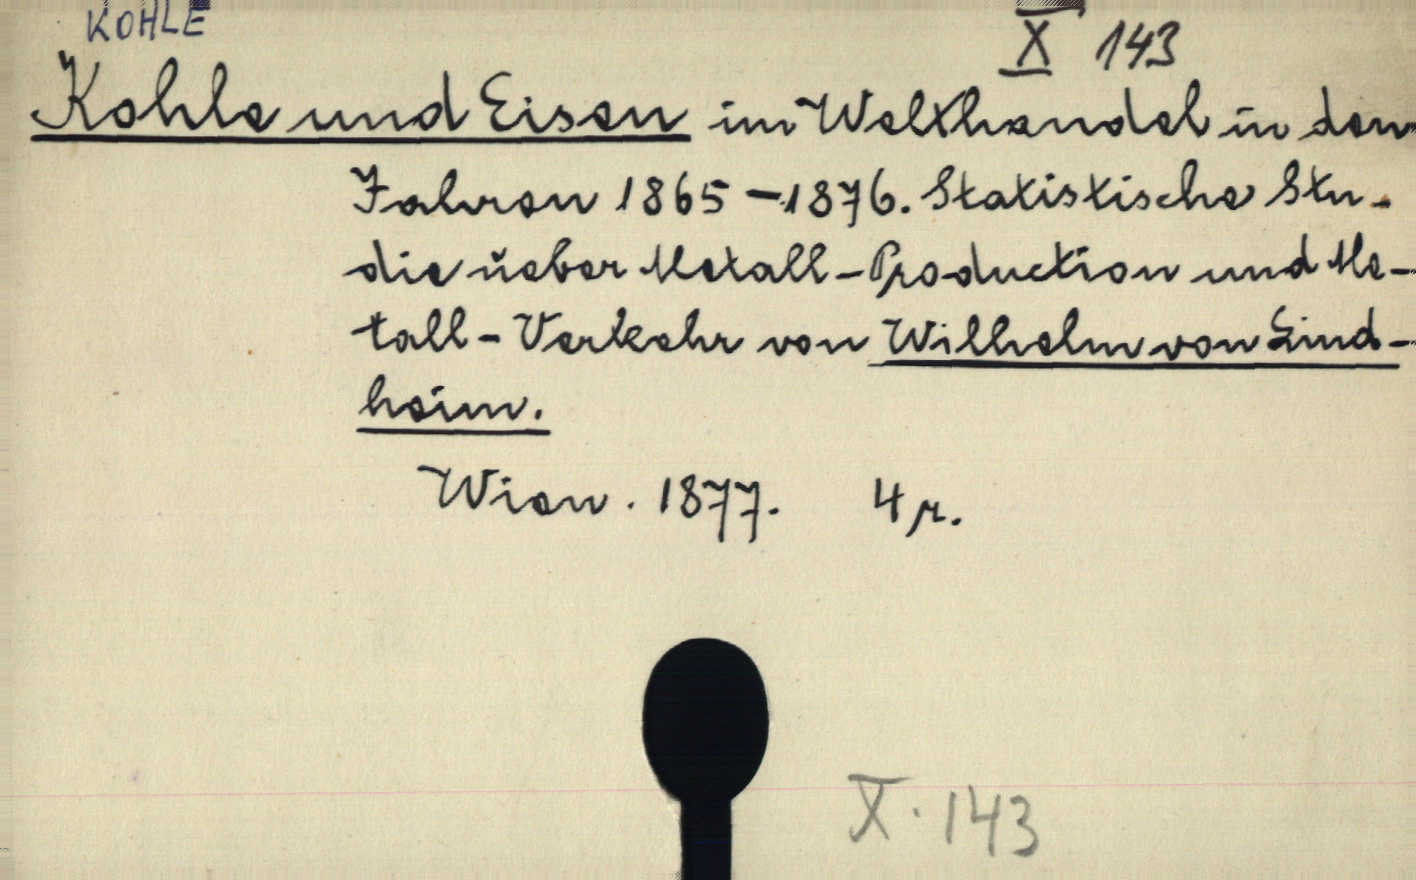 KOHLE
X 143
Kohle und Eisen im Welthandel in den
Jahren 1865-1876. Statistische Stu-
die ueber Metall-Production und Me-
tall-Verkehr von Wilhelm von Lind-
heim.
Wien. 1877. 4 r.
X. 143